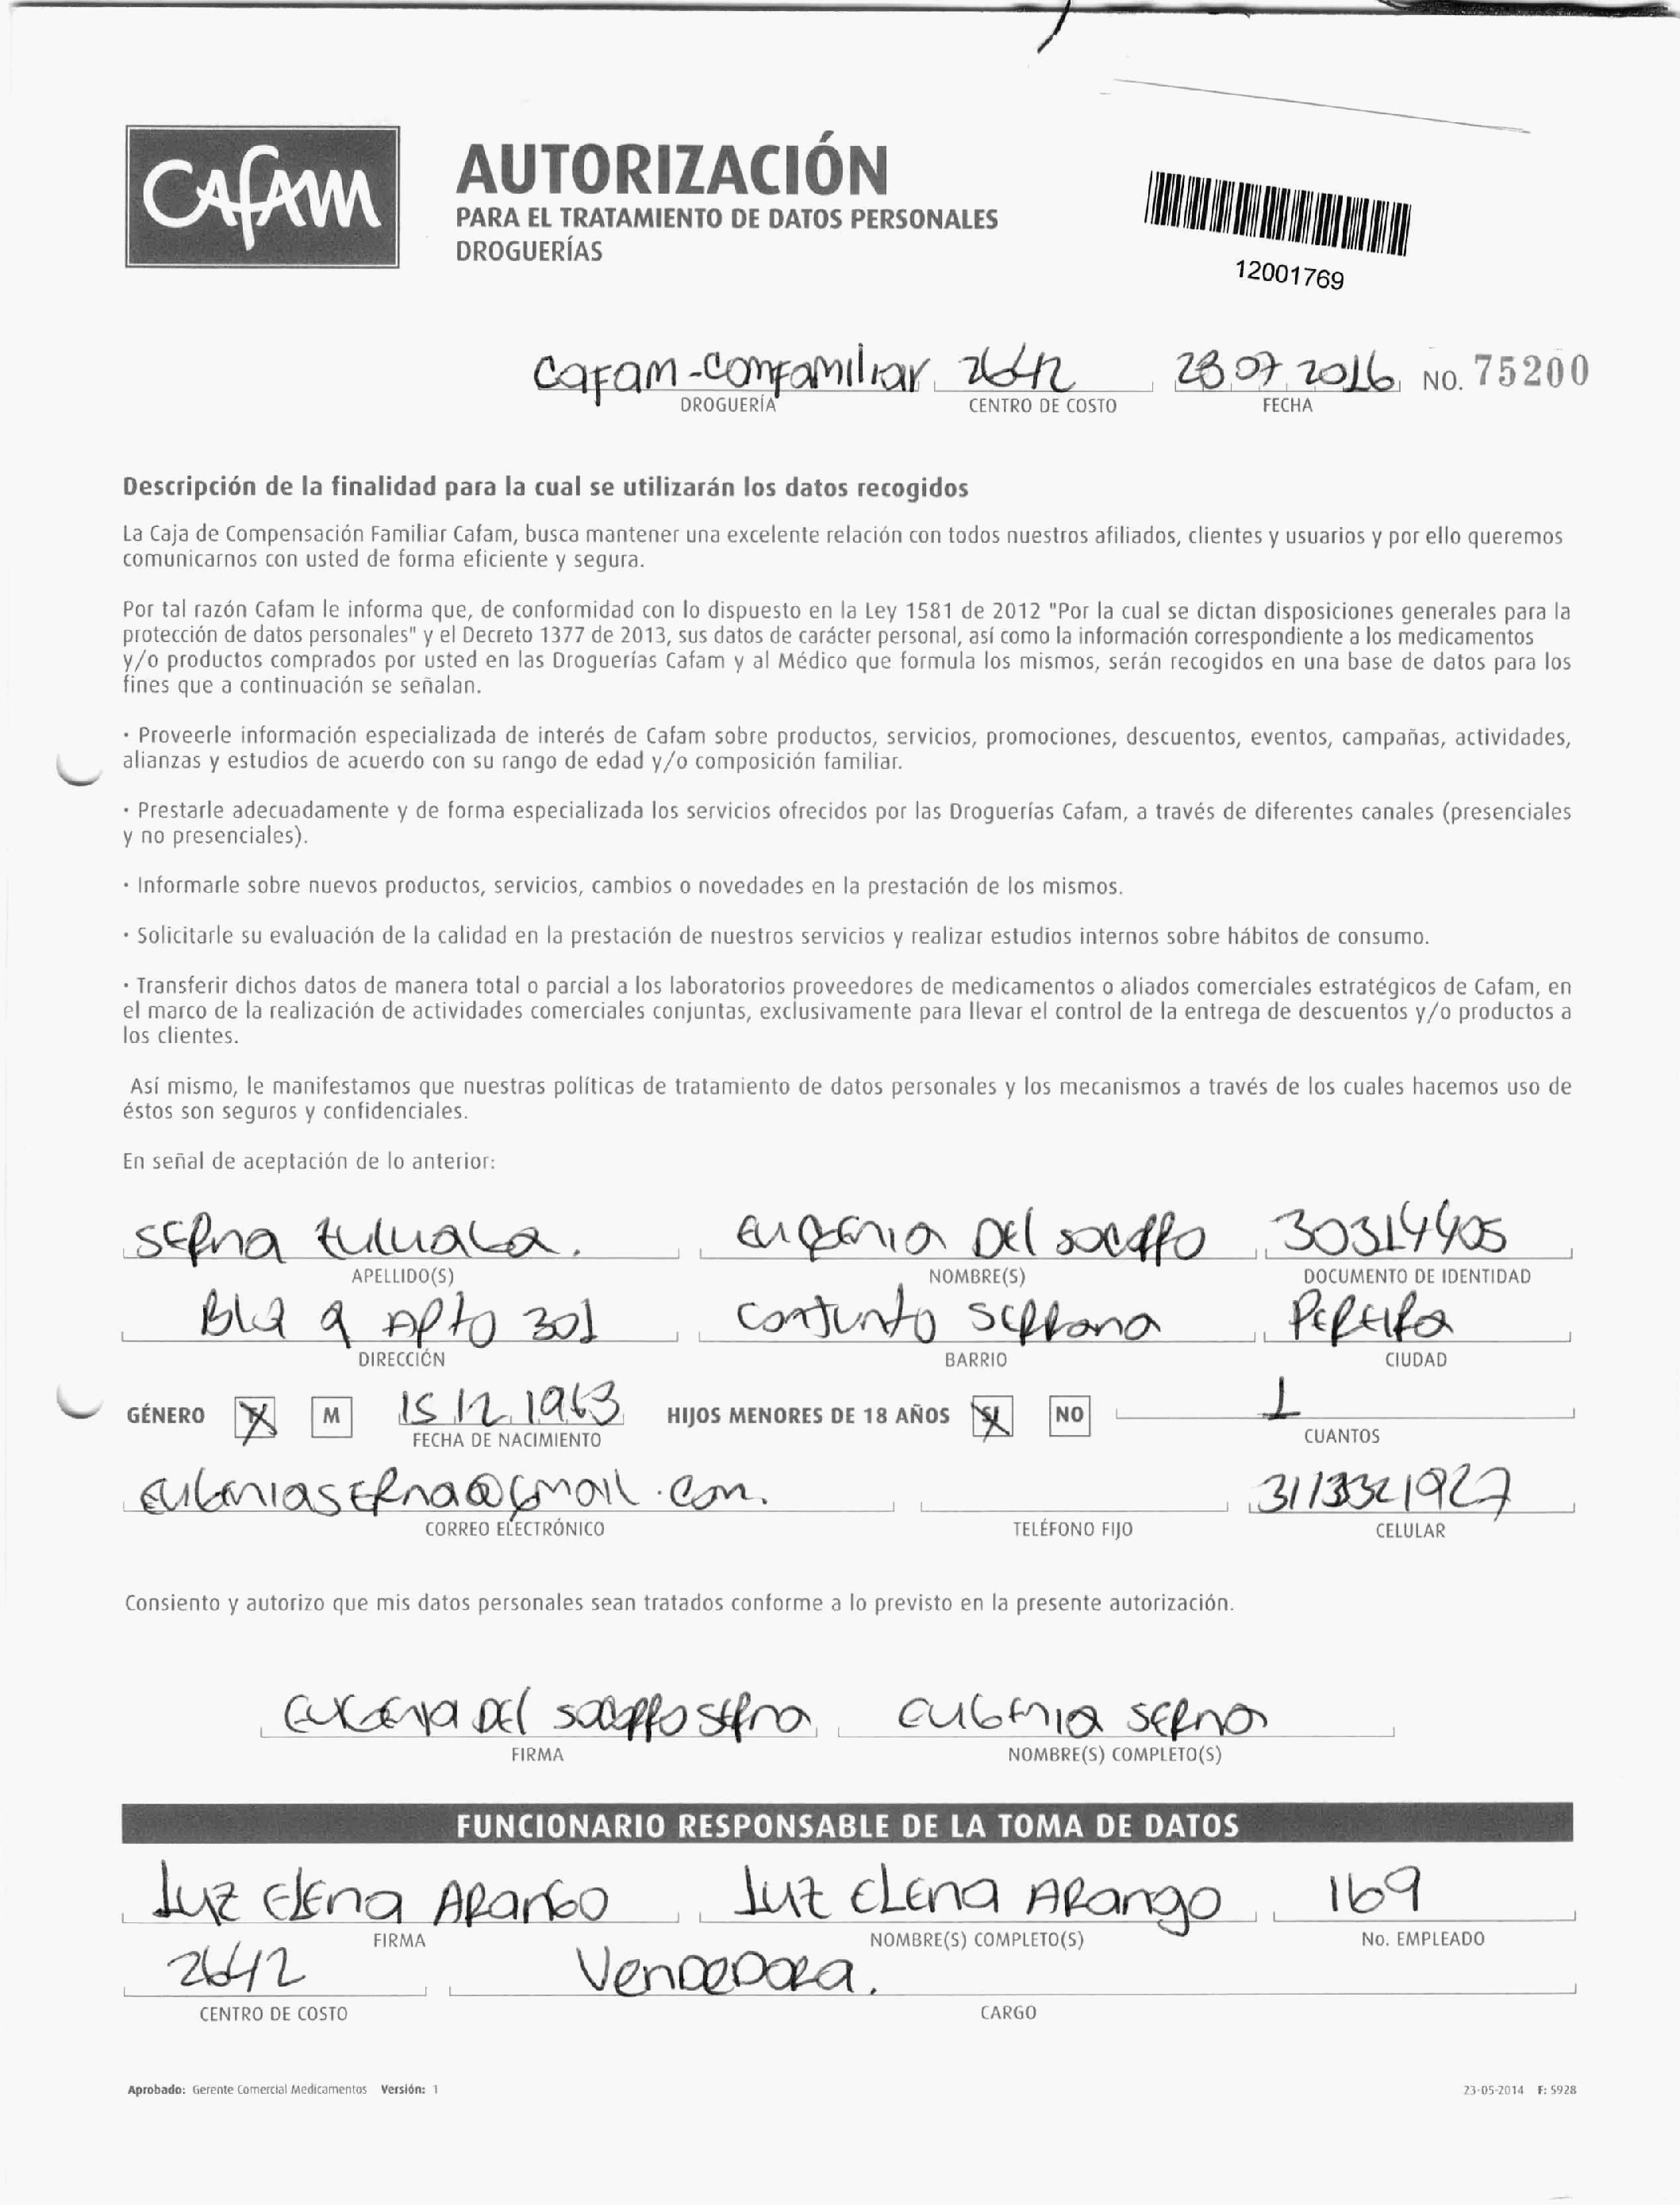 CAFAM
AUTORIZACIÓN
PARA EL TRATAMIENTO DE DATOS PERSONALES
DROGUERÍAS
12001769
Cafam-Comfamiliar 2642 28 07 2016 NO. 75200
DROGUERÍA CENTRO DE COSTO FECHA
Descripción de la finalidad para la cual se utilizarán los datos recogidos
La Caja de Compensación Familiar Cafam, busca mantener una excelente relación con todos nuestros afiliados, clientes y usuarios y por ello queremos
comunicarnos con usted de forma eficiente y segura.
Por tal razón Cafam le informa que, de conformidad con lo dispuesto en la Ley 1581 de 2012 "Por la cual se dictan disposiciones generales para la
protección de datos personales" y el Decreto 1377 de 2013, sus datos de carácter personal, así como la información correspondiente a los medicamentos
y/o productos comprados por usted en las Droguerías Cafam y al Médico que formula los mismos, serán recogidos en una base de datos para los
fines que a continuación se señalan.
· Proveerle información especializada de interés de Cafam sobre productos, servicios, promociones, descuentos, eventos, campañas, actividades,
alianzas y estudios de acuerdo con su rango de edad y/o composición familiar.
· Prestarle adecuadamente y de forma especializada los servicios ofrecidos por las Droguerías Cafam, a través de diferentes canales (presenciales
y no presenciales).
· Informarle sobre nuevos productos, servicios, cambios o novedades en la prestación de los mismos.
· Solicitarle su evaluación de la calidad en la prestación de nuestros servicios y realizar estudios internos sobre hábitos de consumo.
· Transferir dichos datos de manera total o parcial a los laboratorios proveedores de medicamentos o aliados comerciales estratégicos de Cafam, en
el marco de la realización de actividades comerciales conjuntas, exclusivamente para llevar el control de la entrega de descuentos y/o productos a
los clientes.
Así mismo, le manifestamos que nuestras políticas de tratamiento de datos personales y los mecanismos a través de los cuales hacemos uso de
éstos son seguros y confidenciales.
En señal de aceptación de lo anterior:
Serna Eugenia Del Socorro 30314405
APELLIDO(S) NOMBRE(S) DOCUMENTO DE IDENTIDAD
Blq 9 Apto 301 Conjunto Serrana Pereira
DIRECCIÓN BARRIO CIUDAD
GÉNERO F M 15 12 1963 HIJOS MENORES DE 18 AÑOS SI NO 1
FECHA DE NACIMIENTO CUANTOS
eugeniaserna@Gmail.com. 3113321927
CORREO ELECTRÓNICO TELÉFONO FIJO CELULAR
Consiento y autorizo que mis datos personales sean tratados conforme a lo previsto en la presente autorización.
Eugenia Del Socorro Serna Eugenia Serna
FIRMA NOMBRE(S) COMPLETO(S)
FUNCIONARIO RESPONSABLE DE LA TOMA DE DATOS
Luz Elena Arango Luz Elena Arango 169
FIRMA NOMBRE(S) COMPLETO(S) No. EMPLEADO
2642 Vendedora.
CENTRO DE COSTO CARGO
Aprobado: Gerente Comercial Medicamentos Versión: 1 23-05-2014 F: 5928